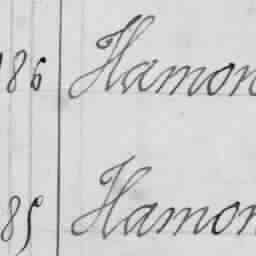 186 Hamon
85 Hamon